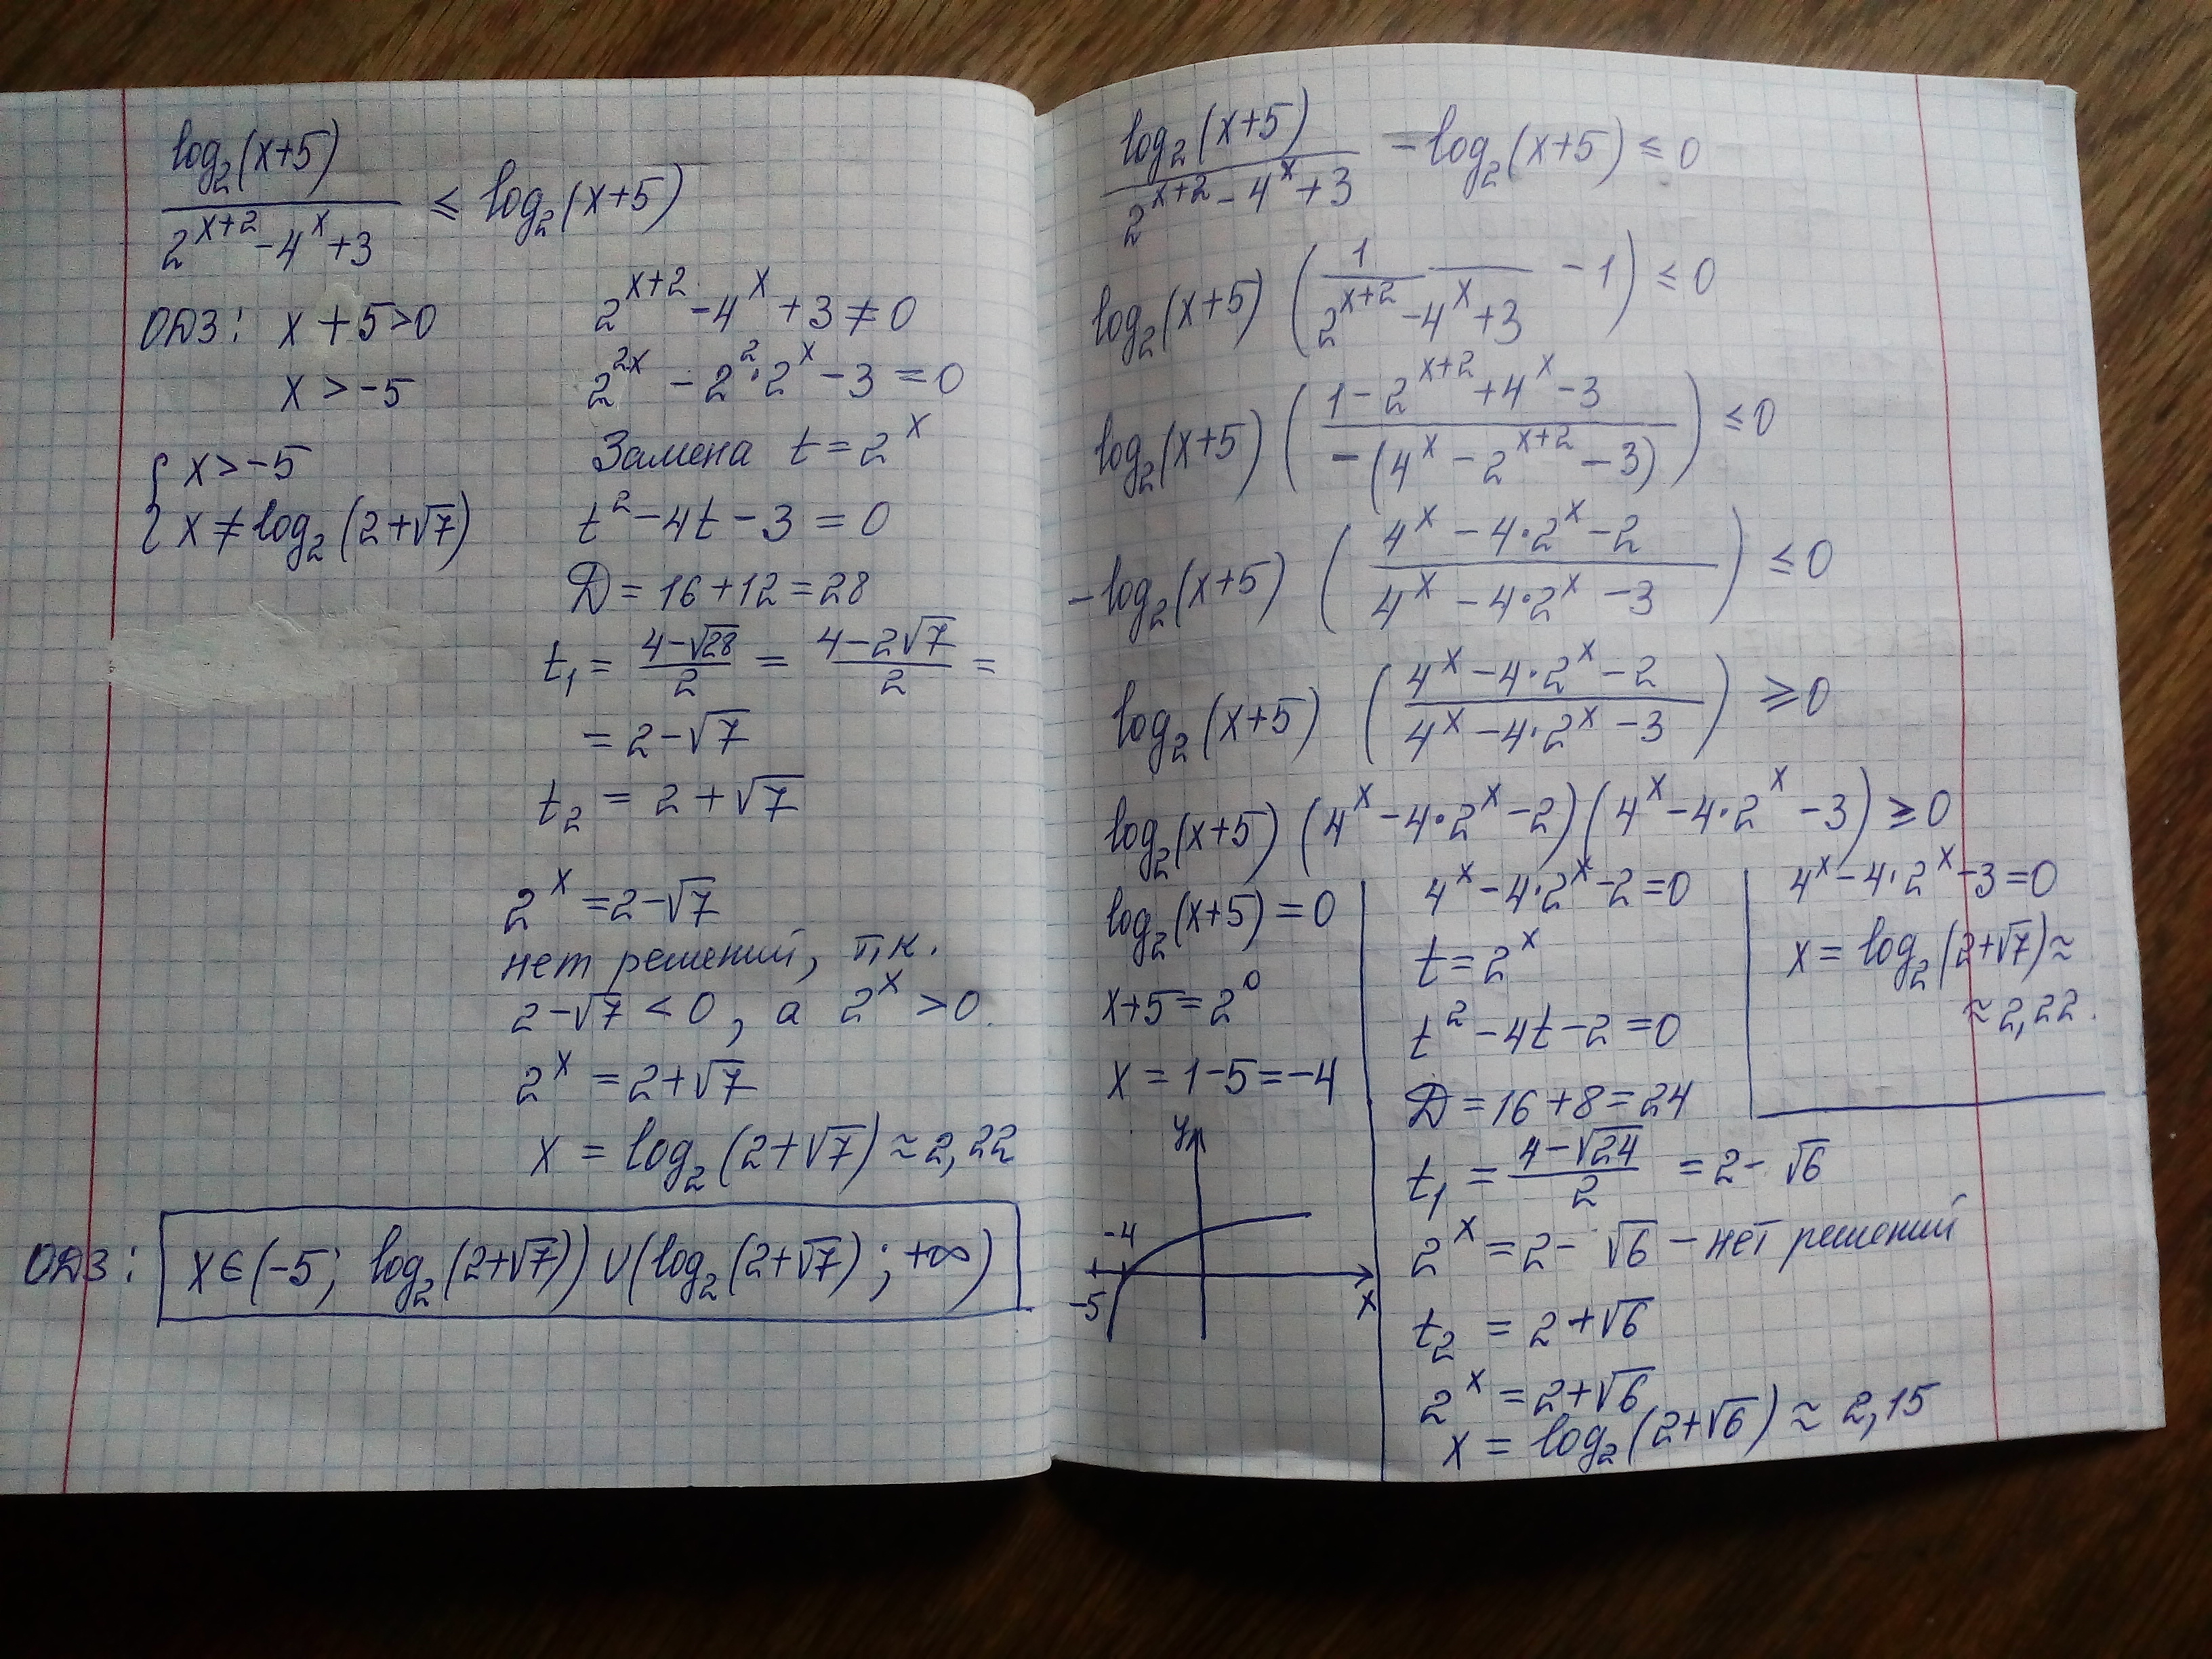 log₂(x+5) / (2^(x+2) - 4^x + 3) ≤ log₂(x+5)
ОДЗ: x + 5 > 0
x > -5
{ x > -5
{ x ≠ log₂(2+√7)
2^(x+2) - 4^x + 3 ≠ 0
2^(2x) - 2²·2^x - 3 = 0
Замена t = 2^x
t² - 4t - 3 = 0
D = 16 + 12 = 28
t₁ = (4-√28)/2 = (4-2√7)/2 =
= 2-√7
t₂ = 2+√7
2^x = 2-√7
нет решений, т.к.
2-√7 < 0, а 2^x > 0.
2^x = 2+√7
x = log₂(2+√7) ≈ 2,22
ОДЗ: x ∈ (-5; log₂(2+√7)) ∪ (log₂(2+√7); +∞)
log₂(x+5) / (2^(x+2) - 4^x + 3) - log₂(x+5) ≤ 0
log₂(x+5) (1/(2^(x+2) - 4^x + 3) - 1) ≤ 0
log₂(x+5) ((1 - 2^(x+2) + 4^x - 3) / (-(4^x - 2^(x+2) - 3))) ≤ 0
-log₂(x+5) ((4^x - 4·2^x - 2) / (4^x - 4·2^x - 3)) ≤ 0
log₂(x+5) ((4^x - 4·2^x - 2) / (4^x - 4·2^x - 3)) ≥ 0
log₂(x+5) (4^x - 4·2^x - 2)(4^x - 4·2^x - 3) ≥ 0
log₂(x+5) = 0
x+5 = 2⁰
x = 1-5 = -4
y
-4
-5
x
4^x - 4·2^x - 2 = 0
t = 2^x
t² - 4t - 2 = 0
D = 16 + 8 = 24
t₁ = (4-√24)/2 = 2-√6
2^x = 2-√6 - нет решений
t₂ = 2+√6
2^x = 2+√6
x = log₂(2+√6) ≈ 2,15
4^x - 4·2^x - 3 = 0
x = log₂(2+√7) ≈
≈ 2,22.